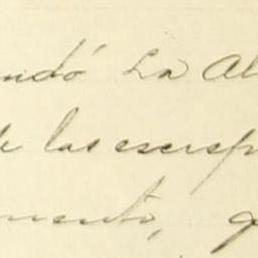 ndó La Al
de las escrep
mento, q